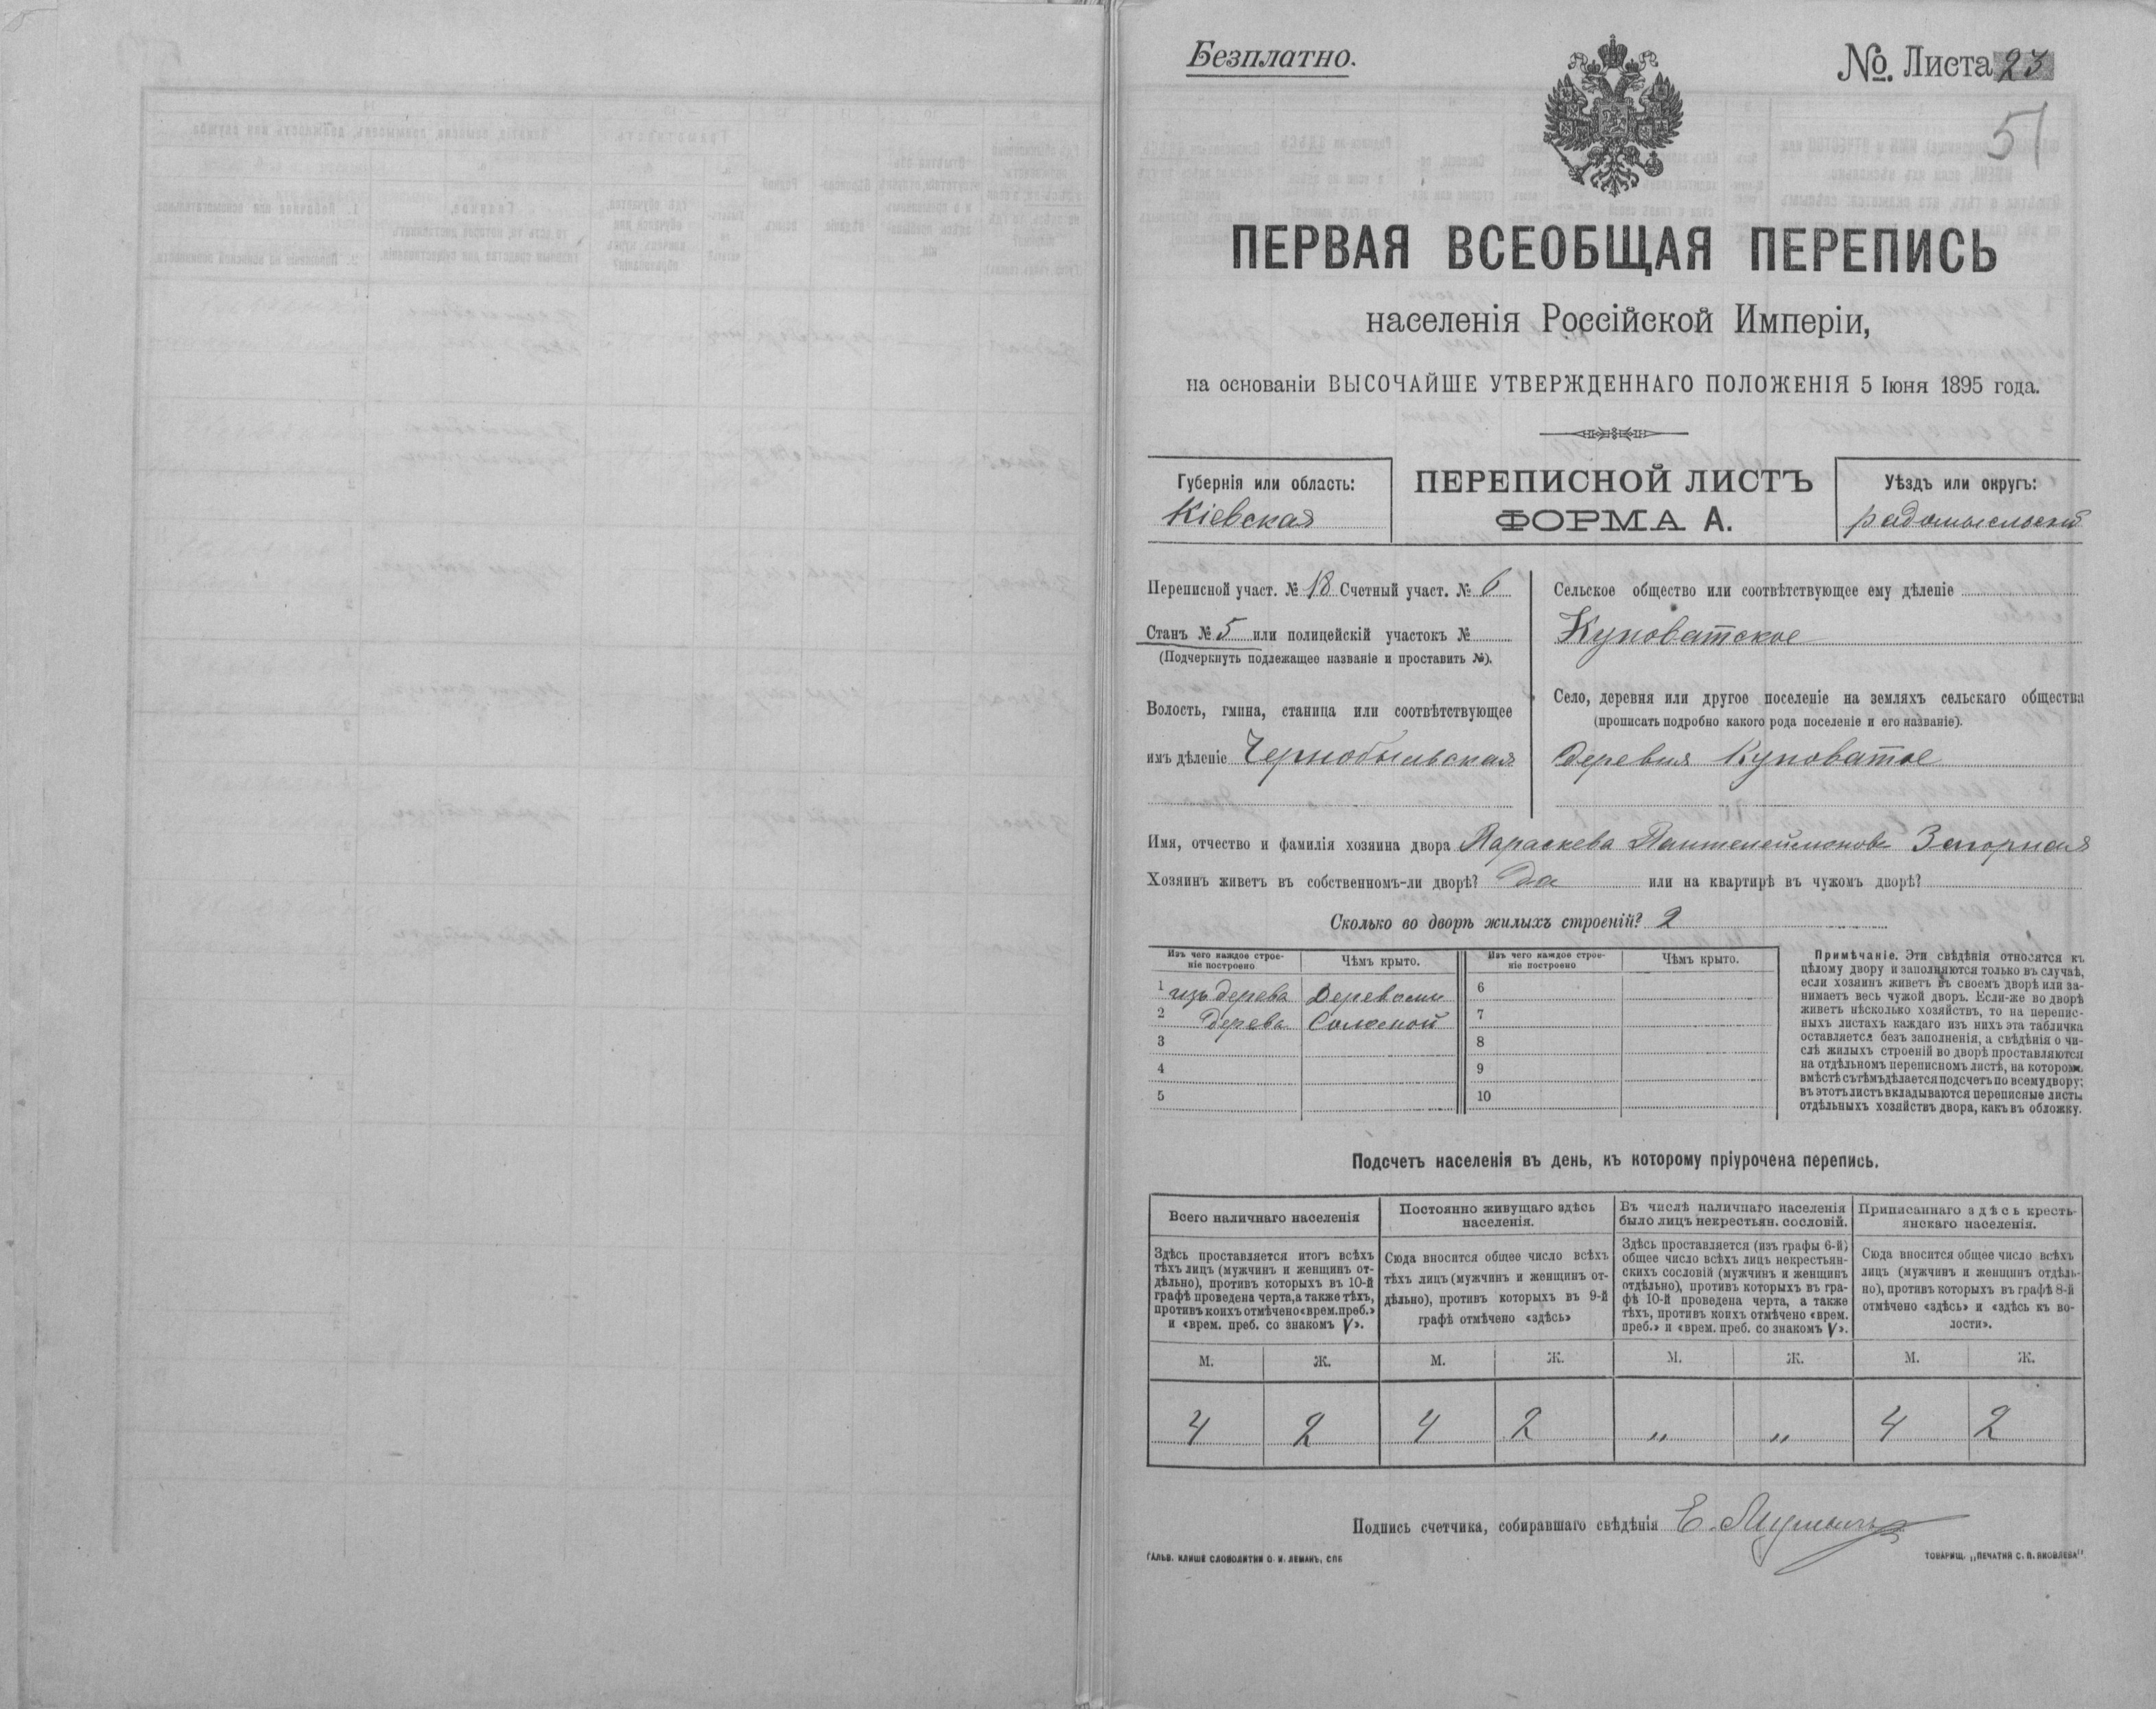 Безплатно.
№. Листа 23
51
ПЕРВАЯ ВСЕОБЩАЯ ПЕРЕПИСЬ
населенія Россійской Имперіи,
на основаніи ВЫСОЧАЙШЕ УТВЕРЖДЕННАГО ПОЛОЖЕНІЯ 5 Іюня 1895 года.
Губернія или область:
Кіевская
ПЕРЕПИСНОЙ ЛИСТЪ
ФОРМА А.
Уѣздъ или округъ:
радомысльскій
Переписной участ. № 18 Счетный участ. № 6
Станъ № 5 или полицейскій участокъ №
(Подчеркнуть подлежащее названіе и проставить №).
Волость, гмина, станица или соотвѣтствующее
имъ дѣленіе Чернобыльская
Сельское общество или соотвѣтствующее ему дѣленіе
Куповатское
Село, деревня или другое поселеніе на земляхъ сельскаго общества
(прописать подробно какого рода поселеніе и его названіе).
деревня Куповатое
Имя, отчество и фамилія хозяина двора Параскева Пантелеймонова Запорная
Хозяинъ живетъ въ собственномъ-ли дворѣ? Да или на квартирѣ въ чужомъ дворѣ?
Сколько во дворѣ жилыхъ строеній? 2
Изъ чего каждое строе-
ніе построено
Чѣмъ крыто.
Изъ чего каждое строе-
ніе построено
Чѣмъ крыто.
1 изъ дерева Деревомъ 6
2 дерева Соломой 7
3 8
4 9
5 10
Примѣчаніе. Эти свѣдѣнія относятся къ
цѣлому двору и заполняются только въ случаѣ,
если хозяинъ живетъ въ своемъ дворѣ или за-
нимаетъ весь чужой дворъ. Если-же во дворѣ
живетъ нѣсколько хозяйствъ, то на перепис-
ныхъ листахъ каждаго изъ нихъ эта табличка
оставляется безъ заполненія, а свѣдѣнія о чи-
слѣ жилыхъ строеній во дворѣ проставляются
на отдѣльномъ переписномъ листѣ, на которомъ
вмѣстѣ съ тѣмъ дѣлается подсчетъ по всему двору;
въ этотъ листъ вкладываются переписные листы
отдѣльныхъ хозяйствъ двора, какъ въ обложку.
Подсчетъ населенія въ день, къ которому пріурочена перепись.
Всего наличнаго населенія
Постоянно живущаго здѣсь
населенія.
Въ числѣ наличнаго населенія
было лицъ некрестьян. сословій.
Приписаннаго здѣсь кресть-
янскаго населенія.
Здѣсь проставляется итогъ всѣхъ
тѣхъ лицъ (мужчинъ и женщинъ от-
дѣльно), противъ которыхъ въ 10-й
графѣ проведена черта, а также тѣхъ,
противъ коихъ отмѣчено «врем. преб.»
и «врем. преб. со знакомъ V».
Сюда вносится общее число всѣхъ
тѣхъ лицъ (мужчинъ и женщинъ от-
дѣльно), противъ которыхъ въ 9-й
графѣ отмѣчено «здѣсь»
Здѣсь проставляется (изъ графы 6-й)
общее число всѣхъ лицъ некрестьян-
скихъ сословій (мужчинъ и женщинъ
отдѣльно), противъ которыхъ въ гра-
фѣ 10-й проведена черта, а также
тѣхъ, противъ коихъ отмѣчено «врем.
преб.» и «врем. преб. со знакомъ V».
Сюда вносится общее число всѣхъ
лицъ (мужчинъ и женщинъ отдѣль-
но), противъ которыхъ въ графѣ 8-й
отмѣчено «здѣсь» и «здѣсь къ во-
лости».
М. Ж. М. Ж. М. Ж. М. Ж.
4 2 4 2 „ „ 4 2
Подпись счетчика, собиравшаго свѣдѣнія Е.
ГАЛЬВ. КЛИШЕ СЛОВОЛИТНИ О. И. ЛЕМАНЪ, СПБ
ТОВАРИЩ. „ПЕЧАТНЯ С. П. ЯКОВЛЕВА"